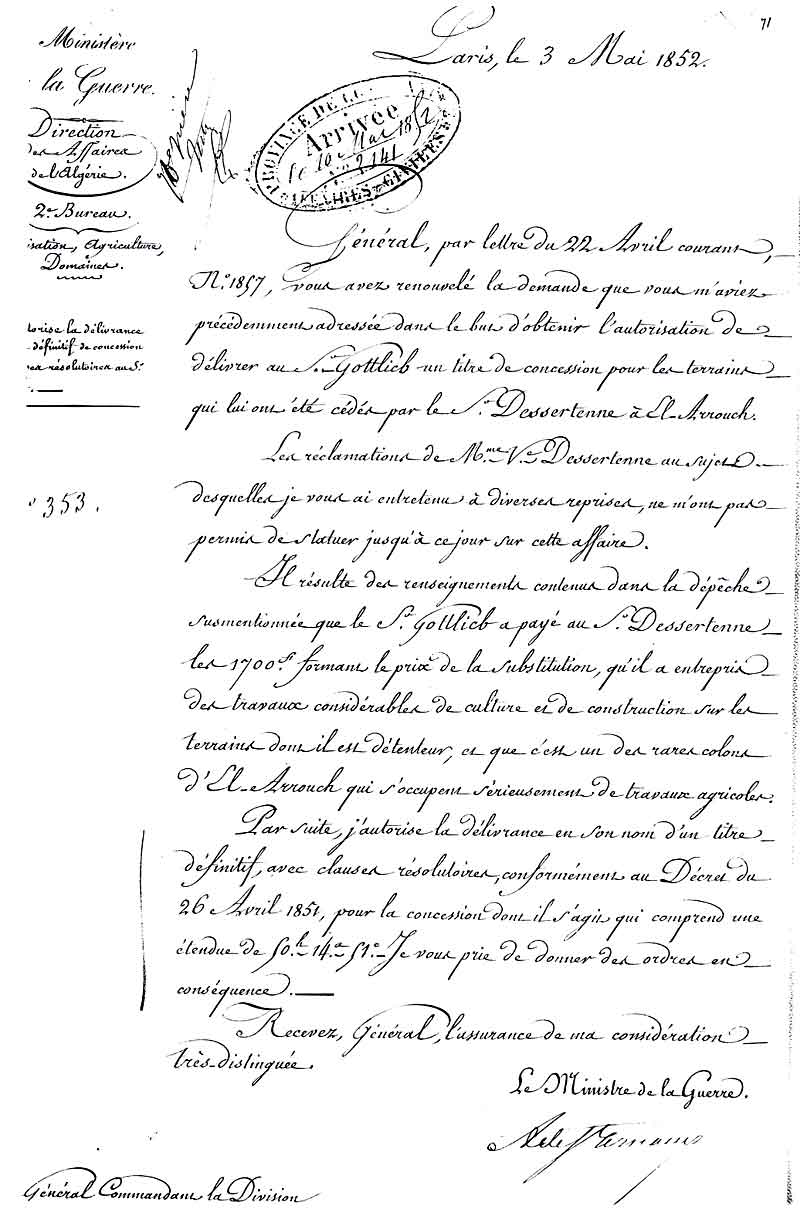 71
Paris, le 3 Mai 1852.
Ministère
la Guerre.
Direction
des Affaires
de l'Algérie.
2e Bureau.
isation, Agriculture,
Domaines.
torise la délivrance
définitif de concession
es résolutoires au Sr.
353.
PROVINCE DE
Arrivée
le 10 Mai 1852
2141
AFFAIRES CIVILES
Général, par lettre du 22 Avril courant,
No. 1857, vous avez renouvelé la demande que vous m'aviez
précédemment adressée dans le but d'obtenir l'autorisation de
délivrer au Sr. Gottlieb un titre de concession pour les terrains
qui lui ont été cédés par le Sr. Dessertenne à El-Arrouch.
Les réclamations de Mme Ve Dessertenne au sujet
desquelles je vous ai entretenu à diverses reprises, ne m'ont pas
permis de statuer jusqu'à ce jour sur cette affaire.
Il résulte des renseignements contenus dans la dépêche
susmentionnée que le Sr. Gottlieb a payé au Sr. Dessertenne
les 1700f formant le prix de la substitution, qu'il a entrepris
des travaux considérables de culture et de construction sur les
terrains dont il est détenteur, et que c'est un des rares colons
d'El-Arrouch qui s'occupent sérieusement de travaux agricoles.
Par suite, j'autorise la délivrance en son nom d'un titre
définitif, avec clauses résolutoires, conformément au Décret du
26 Avril 1851, pour la concession dont il s'agit qui comprend une
étendue de 50h 14a 51c. Je vous prie de donner des ordres en
conséquence.
Recevez, Général, l'assurance de ma considération
très-distinguée.
Le Ministre de la Guerre.
Général Commandant la Division